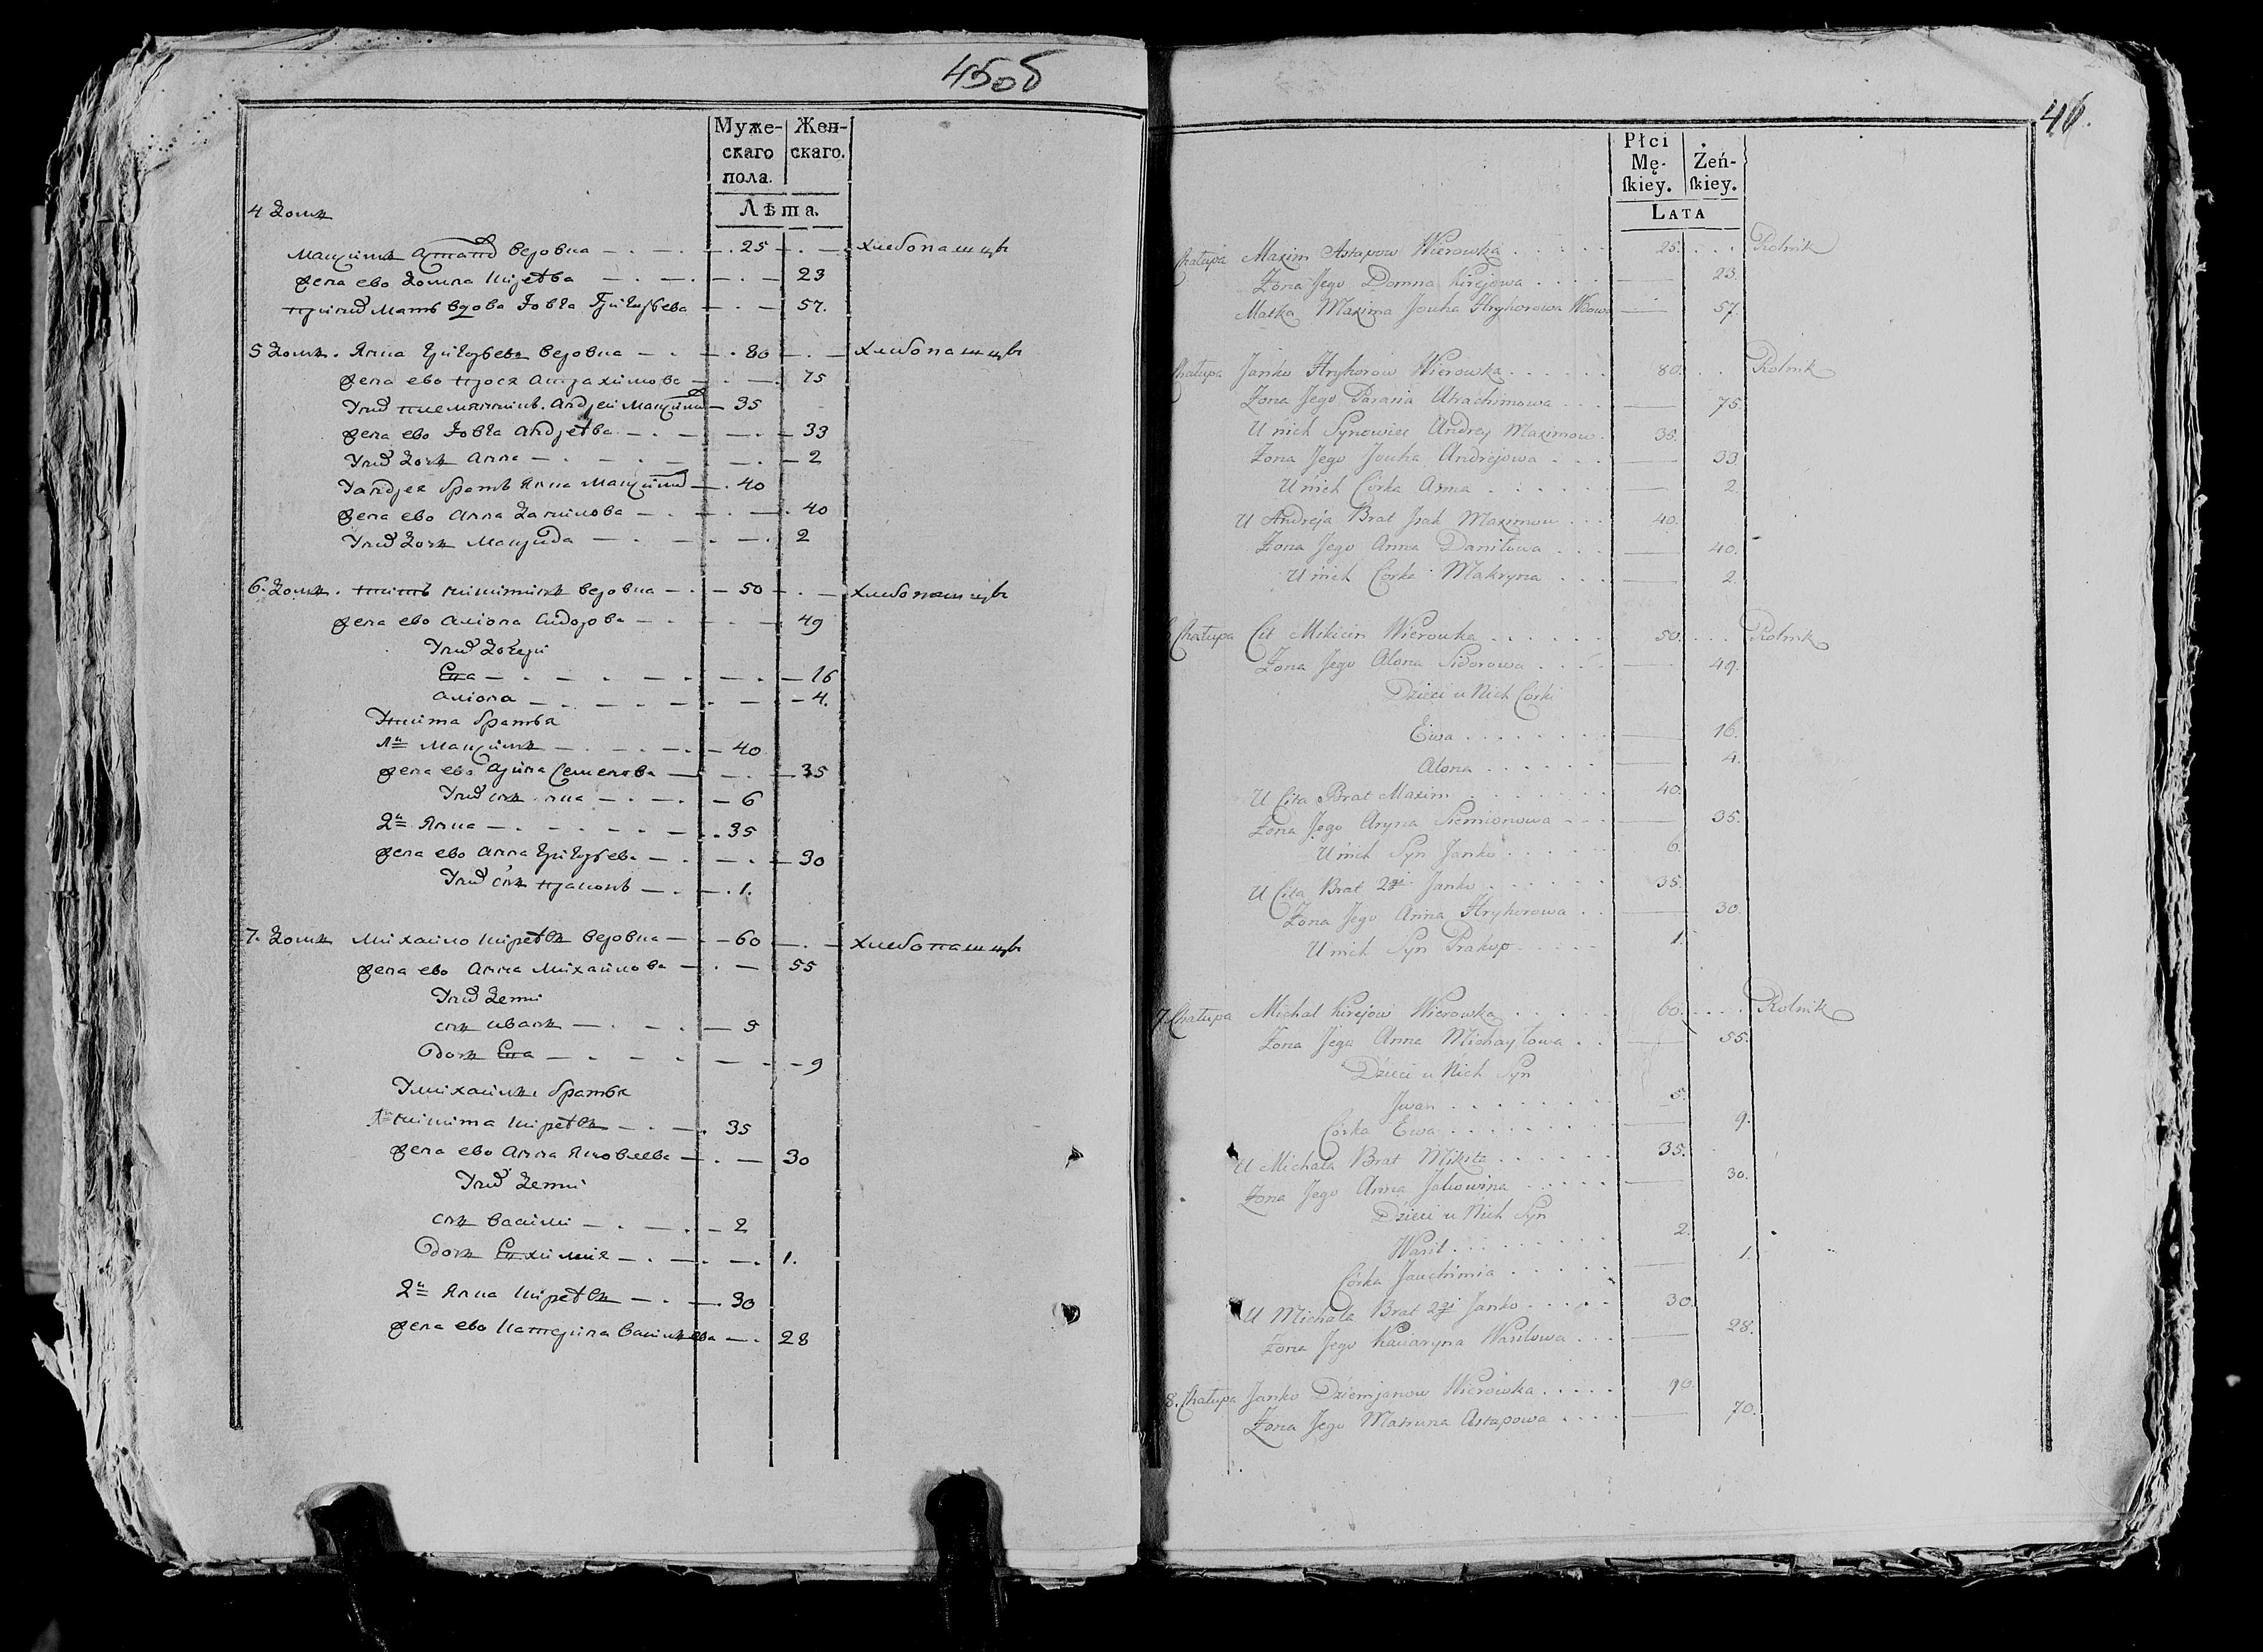 45об
Муже-
скаго
пола.
Жен-
скаго.
Лѣта.
4 Домъ
Максимъ Астаповъ Веровка 25 хлебопашцъ
Жена ево Домна Киреева 23
при нихъ мать вдова Іовга Григорьева 57.
5 Домъ. Янка Григорьевъ Веровка 80 хлебопашцъ
Жена ево Прося 75
У нихъ племянникъ Андрей Максимовъ 35
Жена ево Іовга Андреева 33
У нихъ дочь Анна 2
У Андрея братъ Янка Максимовъ 40
Жена ево Анна Данилова 40
У нихъ дочь Макрида 2
6. Домъ. Титъ Никитинъ Веровка 50 хлебопашцъ
Жена ево Алiона Сидорова 49
У нихъ дочери
Ева 16
Алiона 4.
У Тита братья
1й Максимъ 40
Жена ево Арина Семенова 35
У нихъ сынъ Янка 6
2й Янка 35
Жена ево Анна Григорьева 30
У нихъ сынъ Пракопъ 1.
7. Домъ Михайло Киреевъ Веровка 60 хлебопашцъ
Жена ево Анна Михайлова 55
У нихъ дети
сынъ Иванъ 5
Дочь Ева 9
У Михайлы братья
1й Никита Киреевъ 35
Жена ево Анна Яковлева 30
У нихъ дети
сынъ Василей 2
Дочь Евхимия 1.
2й Янка Киреевъ 30
Жена ево Катерина Василева 28
46.
Płci
Mę-
ſkiey.
Żeń-
ſkiey.
Lata
Chałupa Maxim Astapow Wierowka 25. Rolnik
Żona Jego Domna Kirejowa 23.
Matka Maxima Jouha Hryhorowa Wdowa 57.
Chałupa Janko Hryhorow Wierowka 80. Rolnik
Żona Jego Parasia Atrachimowa 75.
U nich Synowiec Andrey Maximow 35.
Żona Jego Jouha Andrejowa 33.
U nich Córka Anna 2.
U Andreja Brat Jnak Maximow 40.
Żona Jego Anna Daniłowa 40.
U nich Corka Makryna 2.
Chałupa Cit Mikicin Wierowka 50. Rolnik
Żona Jego Alona Sidorowa 49.
Dzieci u Nich Corki
Ewa 16.
Alona 4.
U Cita Brat Maxim 40.
Żona Jego Aryna Siemionowa 35.
U nich Syn Janko 6.
U Cita Brat 2gi Janko 35.
Żona Jego Anna Hryhorowa 30.
U nich Syn Prakop 1.
7 Chałupa Michał Kirejow Wierowka 60. Rolnik
Żona Jego Anna Michayłowa 55.
Dzieci u Nich Syn
Jwan 5.
Córka Ewa 9.
U Michała Brat Mikita 35.
Żona Jego Anna Jakowina 30.
Dzieci u Nich Syn
Wasil 2.
Córka Jauchimia 1.
U Michała Brat 2gi Janko 30.
Żona Jego Kaciaryna Wasilowa 28.
8. Chałupa Janko Dziemjanow Wierowka 90.
Żona Jego Matruna Astapowa 70.